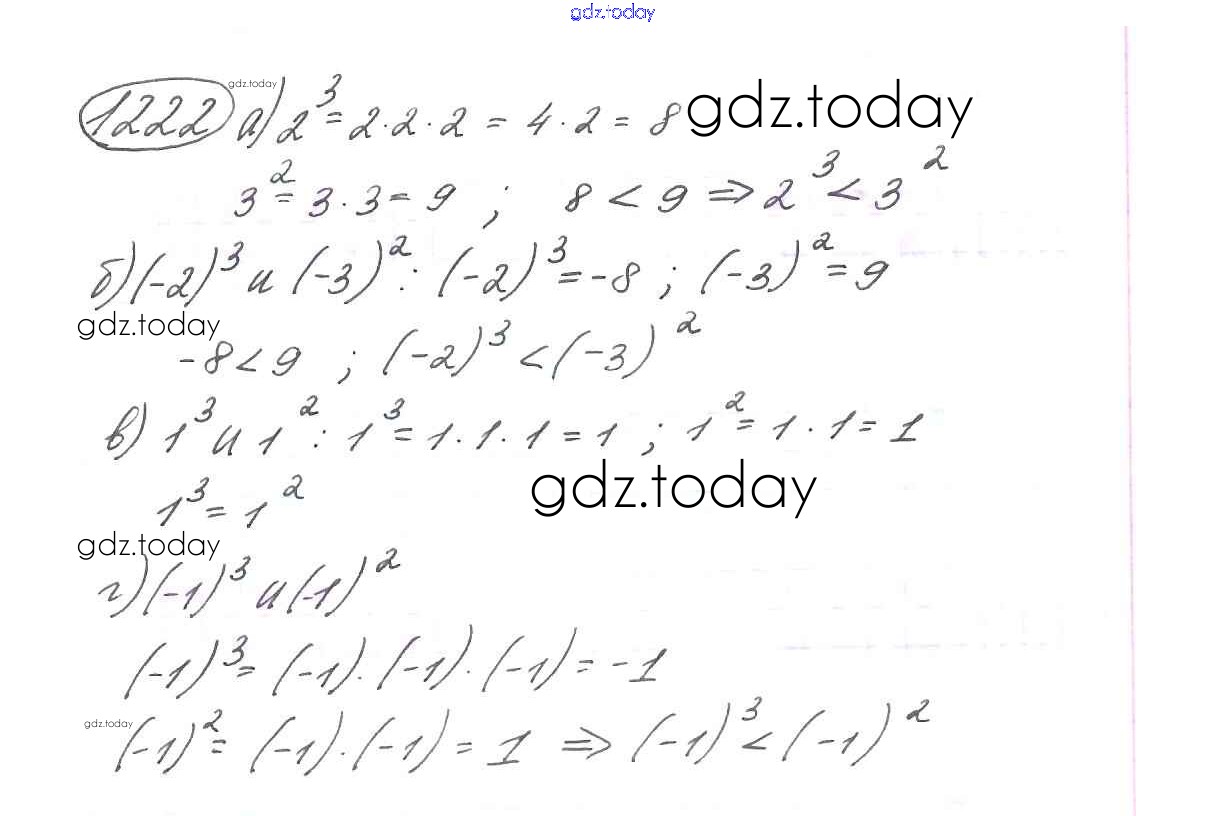 gdz.today
gdz.today
1222 а) 2³ = 2·2·2 = 4·2 = 8 gdz.today
3² = 3·3 = 9 ; 8 < 9 ⇒ 2³ < 3²
б) (-2)³ и (-3)² : (-2)³ = -8 ; (-3)² = 9
gdz.today
-8 < 9 ; (-2)³ < (-3)²
в) 1³ и 1² : 1³ = 1·1·1 = 1 ; 1² = 1·1 = 1
gdz.today
1³ = 1²
gdz.today
г) (-1)³ и (-1)²
(-1)³ = (-1)·(-1)·(-1) = -1
gdz.today
(-1)² = (-1)·(-1) = 1 ⇒ (-1)³ < (-1)²